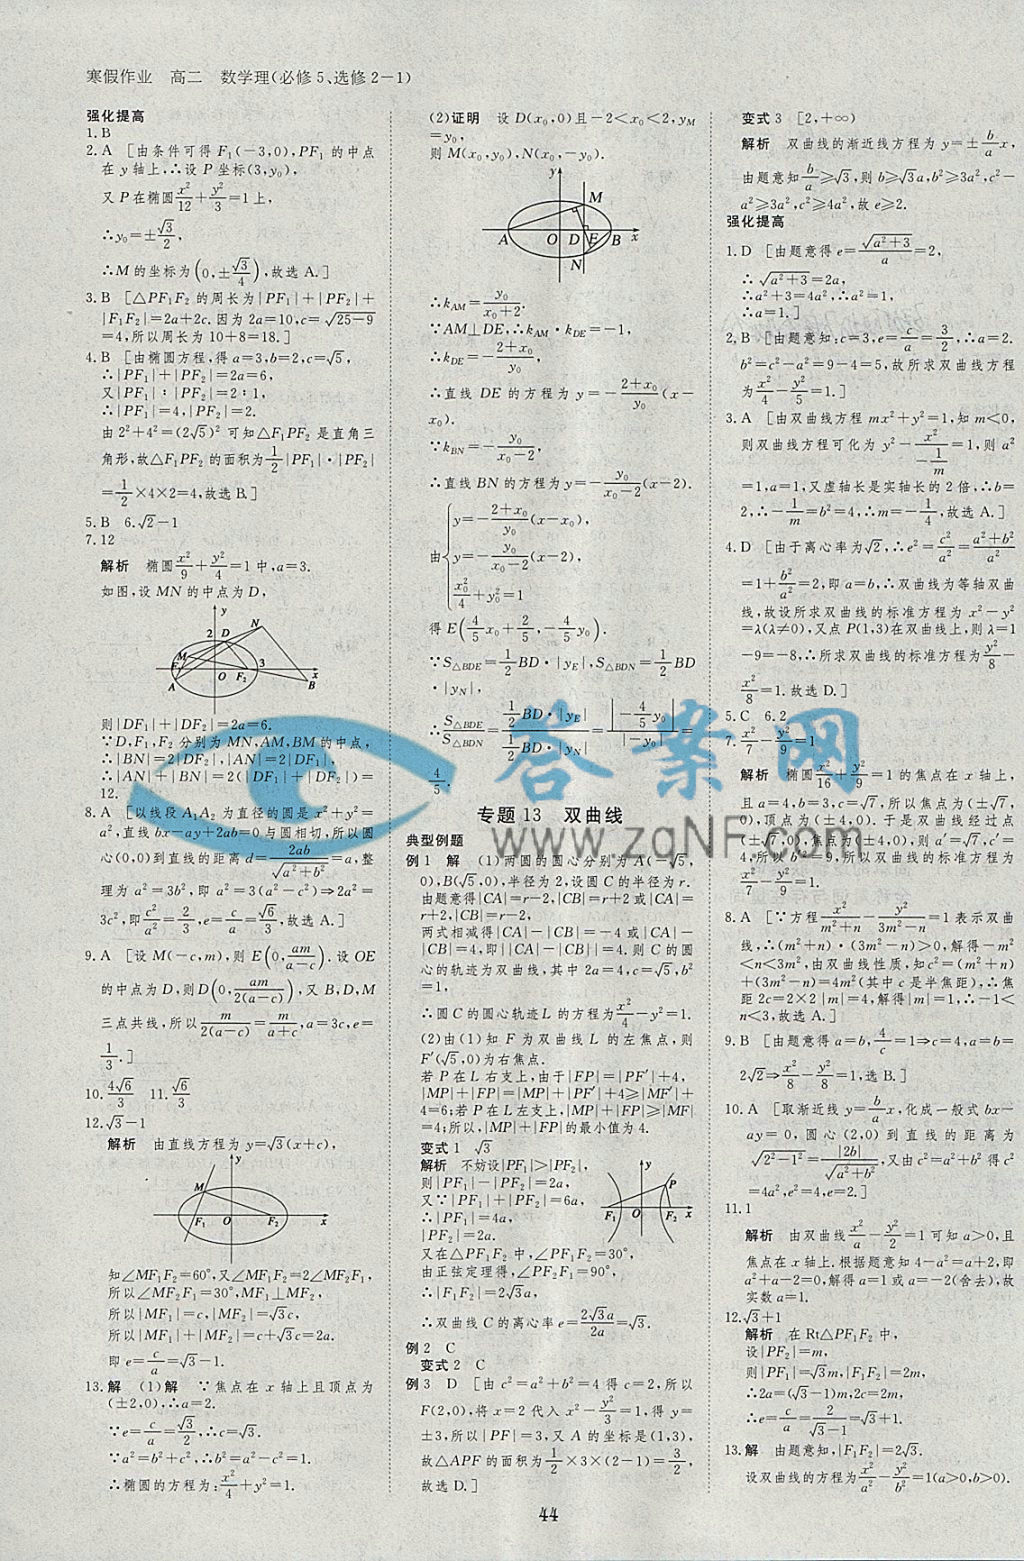 寒假作业 高二 数学理(必修5、选修2-1)
强化提高
1.B
2.A [由条件可得F₁(-3,0),PF₁的中点
在y轴上,∴设P坐标(3,y₀),
又P在椭圆x²/12+y²/3=1上,
∴y₀=±√3/2,
∴M的坐标为(0,±√3/4),故选A.]
3.B [△PF₁F₂的周长为|PF₁|+|PF₂|+
|F₁F₂|=2a+2c.因为2a=10,c=√(25-9)
=4,所以周长为10+8=18.]
4.B [由椭圆方程,得a=3,b=2,c=√5,
∴|PF₁|+|PF₂|=2a=6,
又|PF₁|∶|PF₂|=2∶1,
∴|PF₁|=4,|PF₂|=2.
由2²+4²=(2√5)²可知△F₁PF₂是直角三
角形,故△F₁PF₂的面积为1/2|PF₁|·|PF₂|
=1/2×4×2=4,故选B.]
5.B 6.√2-1
7.12
解析 椭圆x²/9+y²/4=1中,a=3.
如图,设MN的中点为D,
y
2 D N
M
F₁ O F₂ 3 x
A B
则|DF₁|+|DF₂|=2a=6.
∵D,F₁,F₂分别为MN,AM,BM的中点,
∴|BN|=2|DF₂|,|AN|=2|DF₁|,
∴|AN|+|BN|=2(|DF₁|+|DF₂|)=
12.
8.A [以线段A₁A₂为直径的圆是x²+y²=
a²,直线bx-ay+2ab=0与圆相切,所以圆
心(0,0)到直线的距离d=2ab/√(a²+b²)=a,整
理为a²=3b²,即a²=3(a²-c²)⇒2a²=
3c²,即c²/a²=2/3,e=c/a=√6/3,故选A.]
9.A [设M(-c,m),则E(0,am/(a-c)).设OE
的中点为D,则D(0,am/(2(a-c))),又B,D,M
三点共线,所以m/(2(a-c))=m/(a+c),a=3c,e=
1/3.]
10.4√6/3 11.√6/3
12.√3-1
解析 由直线方程为y=√3(x+c),
y
M
F₁ O F₂ x
知∠MF₁F₂=60°,又∠MF₁F₂=2∠MF₂F₁,
所以∠MF₂F₁=30°,MF₁⊥MF₂,
所以|MF₁|=c,|MF₂|=√3c,
所以|MF₁|+|MF₂|=c+√3c=2a.
即e=c/a=√3-1.
13.解 (1)解 ∵焦点在x轴上且顶点为
(±2,0),∴a=2.
∵e=c/a=√3/2,∴c=√3.
∵a²=b²+c²,∴b²=a²-c²=1.
∴椭圆的方程为x²/4+y²=1.
(2)证明 设D(x₀,0)且-2<x₀<2,y_M
=y₀,
则M(x₀,y₀),N(x₀,-y₀).
y
M
A O D E B x
N
∴k_AM=y₀/(x₀+2).
∵AM⊥DE,∴k_AM·k_DE=-1,
∴k_DE=-(2+x₀)/y₀.
∴直线DE的方程为y=-(2+x₀)/y₀(x-
x₀).
∵k_BN=-y₀/(x₀-2),
∴直线BN的方程为y=-y₀/(x₀-2)(x-2).
由{y=-(2+x₀)/y₀(x-x₀),
y=-y₀/(x₀-2)(x-2),
x₀²/4+y₀²=1
得E(4/5x₀+2/5,-4/5y₀).
∵S△BDE=1/2BD·|y_E|,S△BDN=1/2BD
·|y_N|,
∴S△BDE/S△BDN=(1/2BD·|y_E|)/(1/2BD·|y_N|)=|-4/5y₀|/|-y₀|=
4/5.
专题13 双曲线
典型例题
例1 解 (1)两圆的圆心分别为A(-√5,
0),B(√5,0),半径为2,设圆C的半径为r.
由题意得|CA|=r-2,|CB|=r+2或|CA|=
r+2,|CB|=r-2,
两式相减得|CA|-|CB|=-4或|CA|-
|CB|=4,即||CA|-|CB||=4.则C的圆
心的轨迹为双曲线,其中2a=4,c=√5,b²
=1,
∴圆C的圆心轨迹L的方程为x²/4-y²=1.
(2)由(1)知F为双曲线L的左焦点,则
F′(√5,0)为右焦点.
若P在L右支上,由于|FP|=|PF′|+4,
|MP|+|FP|=|MP|+|PF′|+4≥|MF′|+
4=6;若P在L左支上,|MP|+|FP|≥|MF|
=4;所以,|MP|+|FP|的最小值为4.
变式1 √3
解析 不妨设|PF₁|>|PF₂|,
则|PF₁|-|PF₂|=2a,
又∵|PF₁|+|PF₂|=6a,
∴|PF₁|=4a,
|PF₂|=2a.
又在△PF₁F₂中,∠PF₁F₂=30°,
由正弦定理得,∠PF₂F₁=90°,
∴|F₁F₂|=2√3a,
∴双曲线C的离心率e=2√3a/2a=√3.
y
P
F₁ O F₂ x
例2 C
变式2 C
例3 D [由c²=a²+b²=4得c=2,所以
F(2,0),将x=2代入x²-y²/3=1,得y=
±3,所以|PF|=3,又A的坐标是(1,3),
故△APF的面积为1/2×3×(2-1)=3/2,
故选D.]
变式3 [2,+∞)
解析 双曲线的渐近线方程为y=±b/a x,
由题意知b/a≥√3,则b≥√3a,b²≥3a²,c²-
a²≥3a²,c²≥4a²,故e≥2.
强化提高
1.D [由题意得e=√(a²+3)/a=2,
∴√(a²+3)=2a,
∴a²+3=4a²,∴a²=1,
∴a=1.]
2.B [由题意知:c=3,e=c/a=3/2,∴a=2.
b²=c²-a²=9-4=5,故所求双曲线方程
为x²/4-y²/5=1.]
3.A [由双曲线方程mx²+y²=1,知m<0,
则双曲线方程可化为y²-x²/(-1/m)=1,则a²
=1,a=1,又虚轴长是实轴长的2倍,∴b=
2,∴-1/m=b²=4,∴m=-1/4,故选A.]
4.D [由于离心率为√2,∴e²=c²/a²=(a²+b²)/a²
=1+b²/a²=2,即a=b,∴双曲线为等轴双曲
线,故设所求双曲线的标准方程为x²-y²
=λ(λ≠0),又点P(1,3)在双曲线上,则λ=1
-9=-8,∴所求双曲线的标准方程为y²/8-
x²/8=1.故选D.]
5.C 6.2
7.x²/7-y²/9=1
解析 椭圆x²/16+y²/9=1的焦点在x轴上,
且a=4,b=3,c=√7,所以焦点为(±√7,
0),顶点为(±4,0).于是双曲线经过点
(±√7,0),焦点为(±4,0),则a′=√7,c′=
4,所以b′²=9,所以双曲线的标准方程为
x²/7-y²/9=1.
8.A [∵方程x²/(m²+n)-y²/(3m²-n)=1表示双曲
线,∴(m²+n)·(3m²-n)>0,解得-m²
<n<3m²,由双曲线性质,知c²=(m²+n)
+(3m²-n)=4m²(其中c是半焦距),∴焦
距2c=2×2|m|=4,解得|m|=1,∴-1<
n<3,故选A.]
9.B [由题意得a=b,4/c=1⇒c=4,a=b=
2√2⇒x²/8-y²/8=1,选B.]
10.A [取渐近线y=b/a x,化成一般式bx-
ay=0,圆心(2,0)到直线的距离为
√(2²-1²)=|2b|/√(a²+b²),又由c²=a²+b²得c²
=4a²,e²=4,e=2.]
11.1
解析 由双曲线x²/a-y²/2=1可知a>0,且
焦点在x轴上.根据题意知4-a²=a+2,即
a²+a-2=0,解得a=1或a=-2(舍去),故
实数a=1.
12.√3+1
解析 在Rt△PF₁F₂中,
设|PF₂|=m,
则|PF₁|=√3m,|F₁F₂|=2m,
∴2a=(√3-1)m,2c=2m,
∴e=c/a=2/(√3-1)=√3+1.
13.解 由题意知,|F₁F₂|=2√3.
设双曲线的方程为x²/a²-y²/b²=1(a>0,b>0).
44
答案网
www.zqNF.com